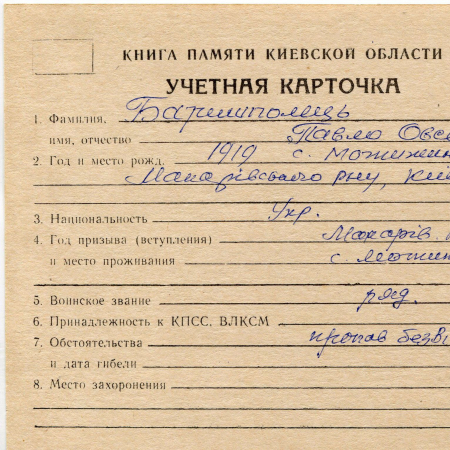 КНИГА ПАМЯТИ КИЕВСКОЙ ОБЛАСТИ
УЧЕТНАЯ КАРТОЧКА
1. Фамилия, Баришполець
имя, отчество Павло Овсе
2. Год и место рожд. 1919 с. Мотижин
Макарівського р-ну, Киї
3. Национальность Укр.
4. Год призыва (вступления) Макарів.
и место проживания с. Мотижин
5. Воинское звание ряд.
6. Принадлежность к КПСС, ВЛКСМ
7. Обстоятельства пропав безві
и дата гибели
8. Место захоронения